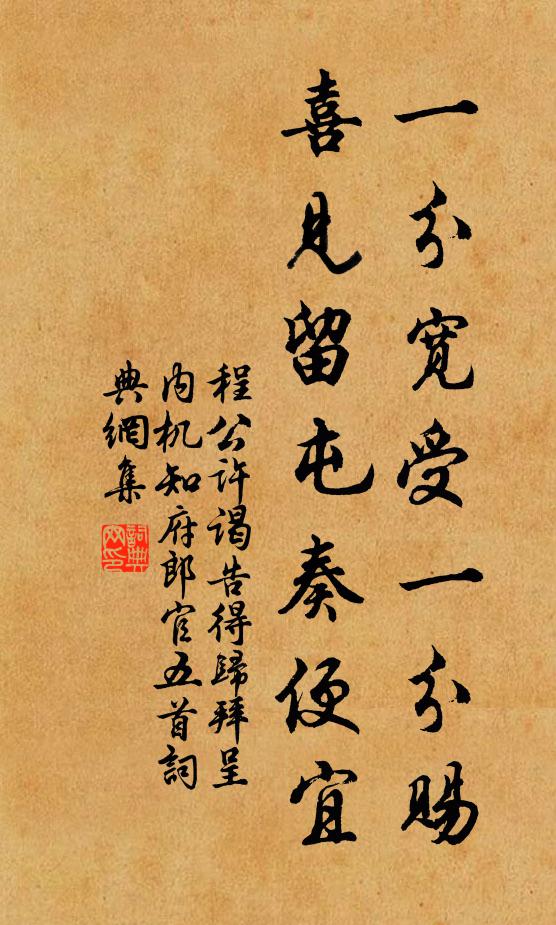 一分寬受一分賜
喜見留屯奏便宜
程公許謁告得歸拜呈
内机知府郎官五首詞
典網集
詞典
网印